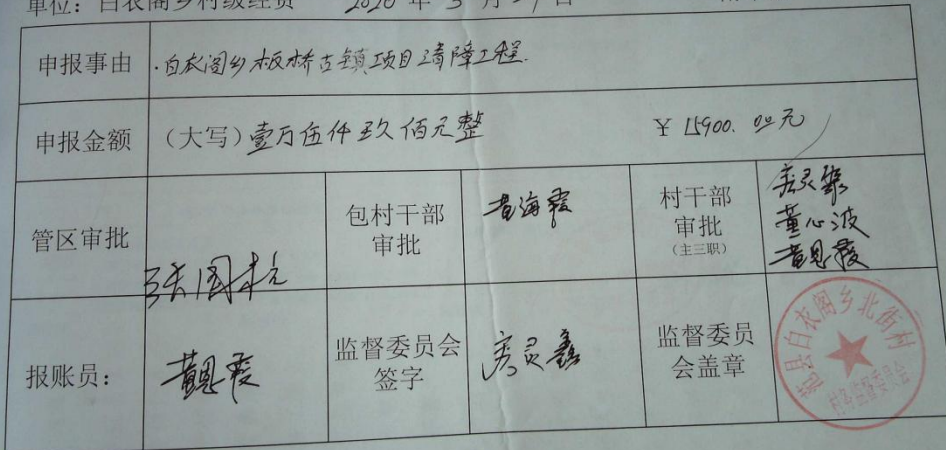 单位：白衣阁乡村级经费 2020 年 5 月 29 日
申报事由 白衣阁乡板桥古镇项目清障工程.
申报金额 （大写）壹万伍仟玖佰元整 ¥ 15900.00元
管区审批 张国杭 包村干部审批 黄海霞 村干部审批（主三职） 董心波 黄恩霞
报账员： 黄恩霞 监督委员会签字 监督委员会盖章 范县白衣阁乡北街村 村务监督委员会